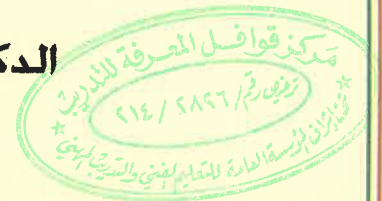 الدك
مركز قوافل المعرفة للتدريب
ترخيص رقم / ٢٨٢٦ / ٢١٤
تحت إشراف المؤسسة العامة للتعليم الفني والتدريب المهني